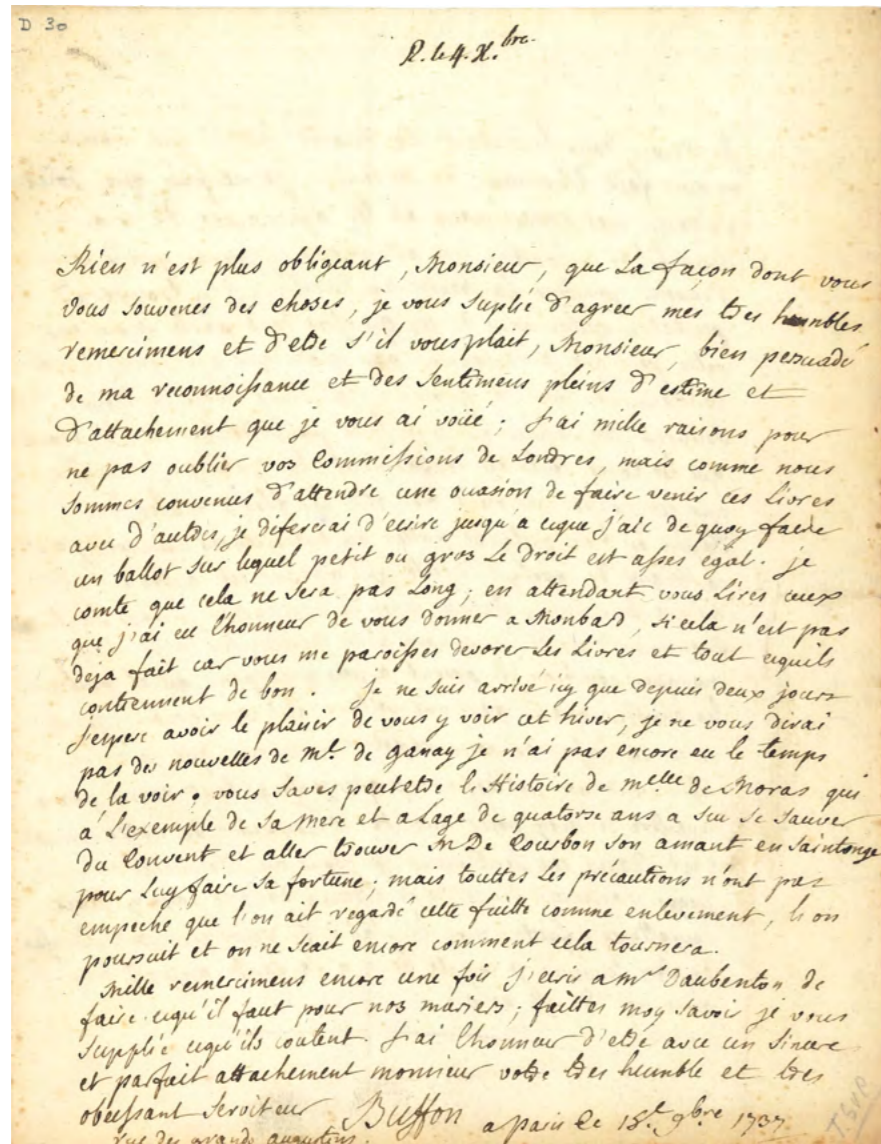 D 30
R. le 4. X.bre.
Rien n'est plus obligeant, Monsieur, que La façon dont vous
vous souvenes des choses, je vous suplie d'agreer mes tres humbles
remercimens et d'etre s'il vous plait, Monsieur, bien persuadé
de ma reconnoissance et des sentimens pleins d'estime et
d'attachement que je vous ai voüé ; J'ai mille raisons pour
ne pas oublier vos Commissions de Londres, mais comme nous
sommes convenus d'attendre une ocasion de faire venir ces Livres
avec d'autres, je difererai d'ecrire jusqu'a ceque j'aie de quoy faire
un ballot sur lequel petit ou gros Le droit est asses égal. je
comte que cela ne sera pas Long ; en attendant vous Lires ceux
que j'ai eu l'honneur de vous donner a Monbard, si cela n'est pas
deja fait car vous me paroisses devorer Les Livres et tout cequils
contiennent de bon. Je ne suis arrivé icy que depuis deux jours
J'espere avoir le plaisir de vous y voir cet hiver, je ne vous dirai
pas des nouvelles de Mr. de Ganay je n'ai pas encore eu le temps
de la voir. vous saves peutetre l'Histoire de melle de Moras qui
a L'exemple de sa Mere et a Lage de quatorse ans a scu se sauver
du Couvent et aller trouver M De Courbon son amant en Saintonge
pour Luy faire sa fortune ; mais touttes Les précautions n'ont pas
empeche que l'on ait regardé cette fuitte comme enlevement, l'on
poursuit et on ne scait encore comment cela tournera.
Mille remercimens encore une fois j'ecris a mr Daubenton de
faire cequ'il faut pour nos mariers ; faittes moy savoir je vous
supplie cequ'ils coutent. J'ai l'honneur d'etre avec un sincere
et parfait attachement monsieur votre tres humble et tres
obeissant serviteur Buffon a Paris Ce 18t 9bre 1737.
rue des grands augustins.
TSVP